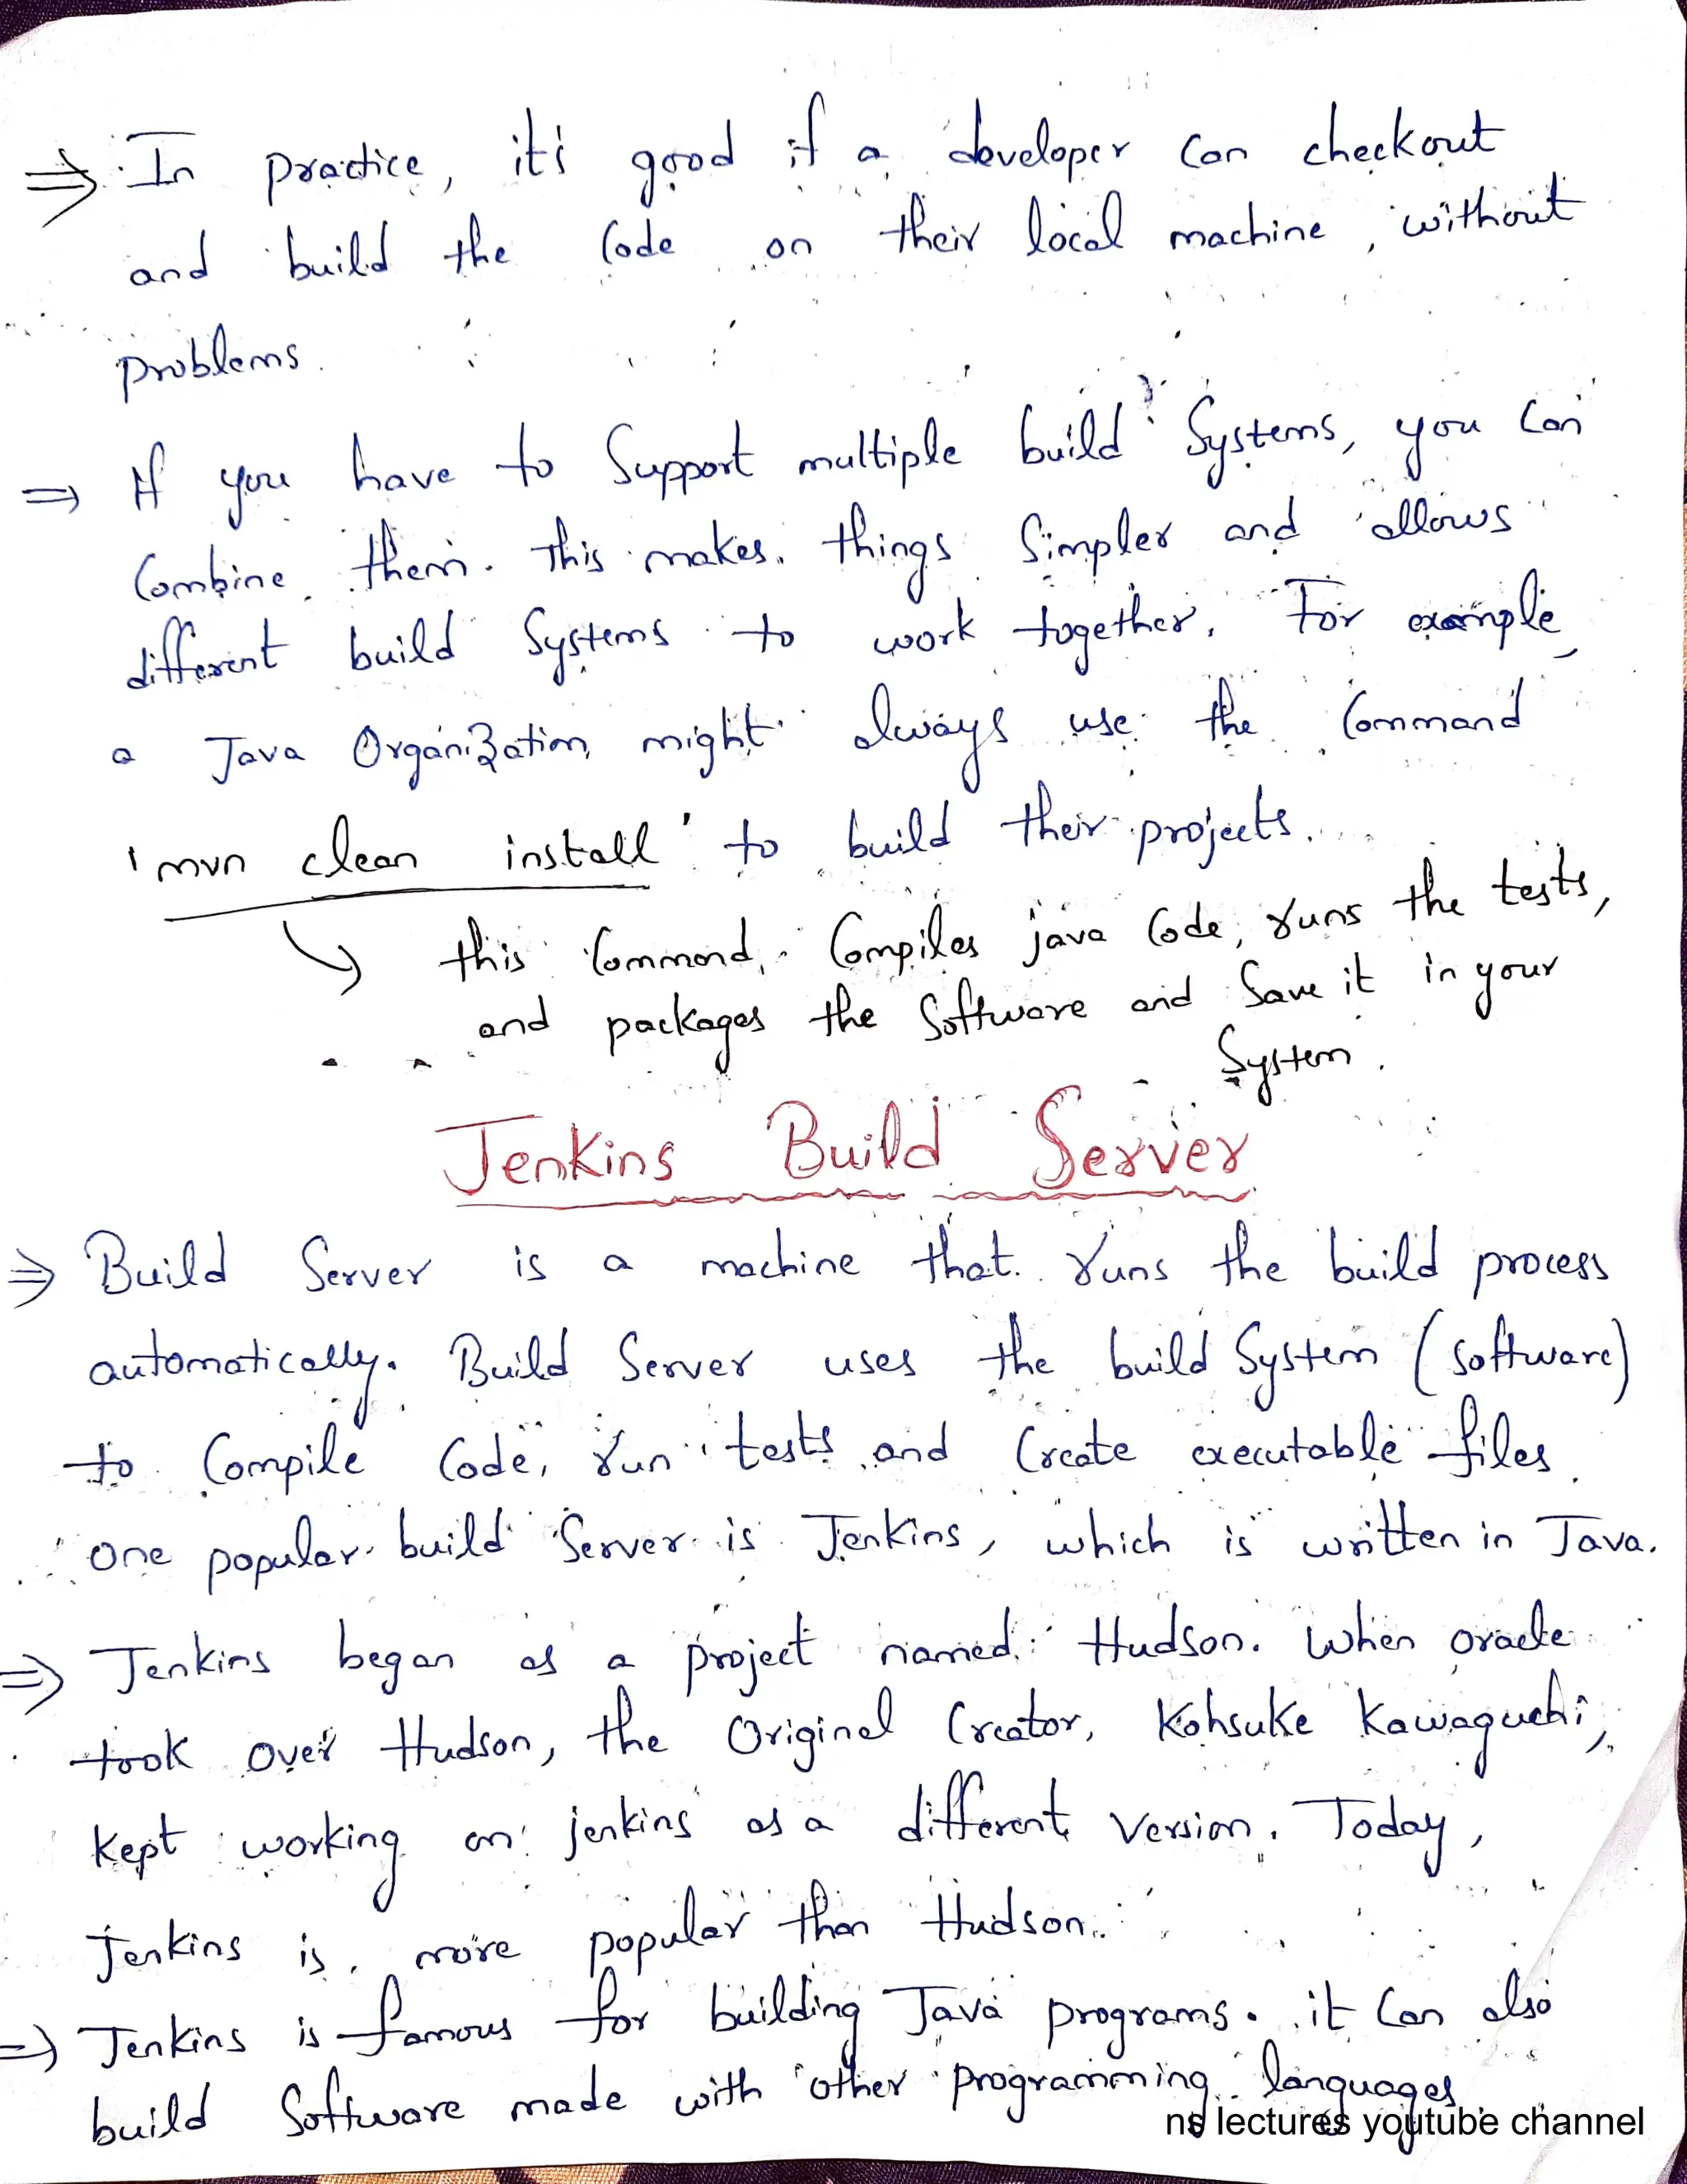 ⇒ In practice, it's good if a developer can checkout
and build the code on their local machine, without
problems.
⇒ If you have to support multiple build systems, you can
combine them. This makes things simpler and allows
different build systems to work together. For example,
a Java Organization might always use the command
'mvn clean install' to build their projects.
↳ this command, Compiles java code, runs the tests,
and packages the software and save it in your
System.
Jenkins Build Server
⇒ Build Server is a machine that runs the build process
automatically. Build Server uses the build System (software)
to Compile Code, run tests and Create executable files.
One popular build Server is Jenkins, which is written in Java.
⇒ Jenkins began as a project named Hudson. When oracle
took over Hudson, the Original Creator, Kohsuke Kawaguchi,
kept working on jenkins as a different version. Today,
Jenkins is more popular than Hudson.
⇒ Jenkins is famous for building Java programs. it Can also
build Software made with other programming languages
ns lectures youtube channel